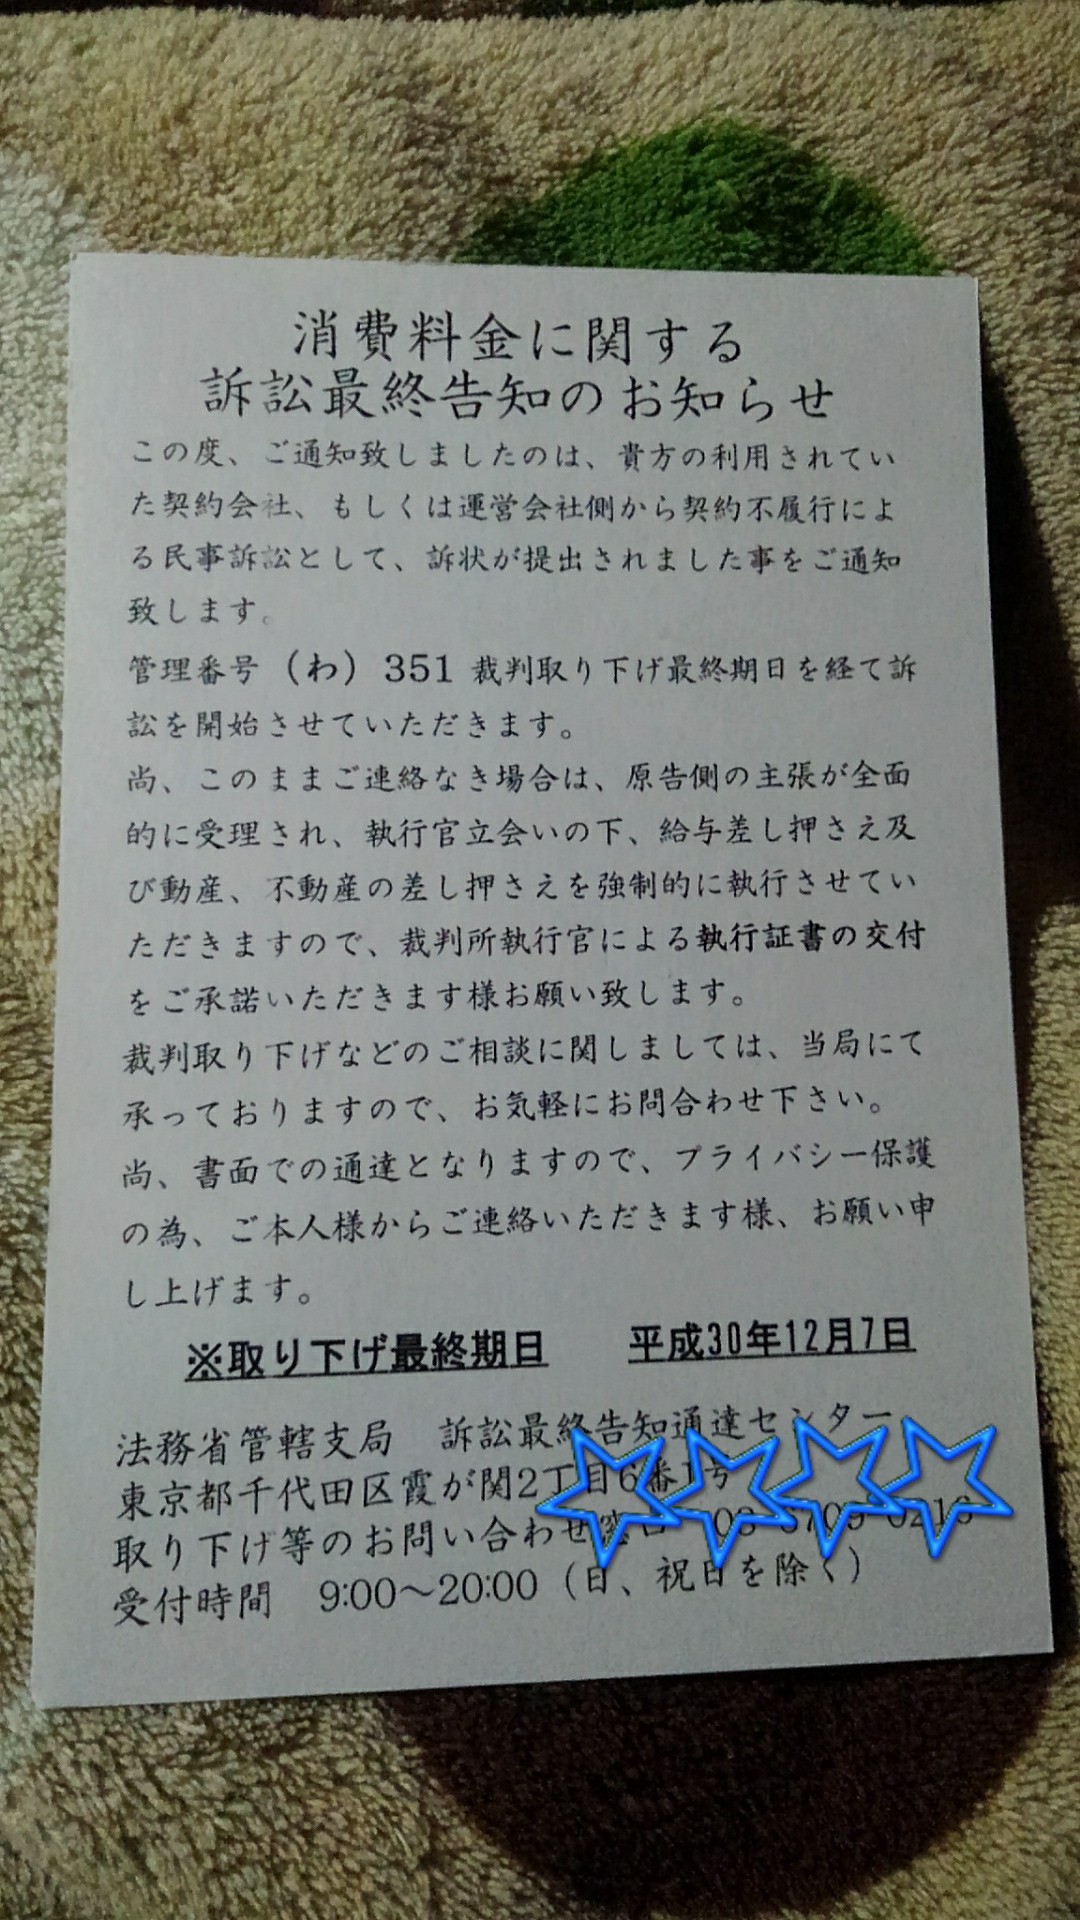 消費料金に関する
訴訟最終告知のお知らせ
この度、ご通知致しましたのは、貴方の利用されてい
た契約会社、もしくは運営会社側から契約不履行によ
る民事訴訟として、訴状が提出されました事をご通知
致します。
管理番号（わ）351 裁判取り下げ最終期日を経て訴
訟を開始させていただきます。
尚、このままご連絡なき場合は、原告側の主張が全面
的に受理され、執行官立会いの下、給与差し押さえ及
び動産、不動産の差し押さえを強制的に執行させてい
ただきますので、裁判所執行官による執行証書の交付
をご承諾いただきます様お願い致します。
裁判取り下げなどのご相談に関しましては、当局にて
承っておりますので、お気軽にお問合わせ下さい。
尚、書面での通達となりますので、プライバシー保護
の為、ご本人様からご連絡いただきます様、お願い申
し上げます。
※取り下げ最終期日　平成30年12月7日
法務省管轄支局　訴訟最終告知通達センター
東京都千代田区霞が関2丁目6番1号
取り下げ等のお問い合わせ
受付時間　9:00～20:00（日、祝日を除く）